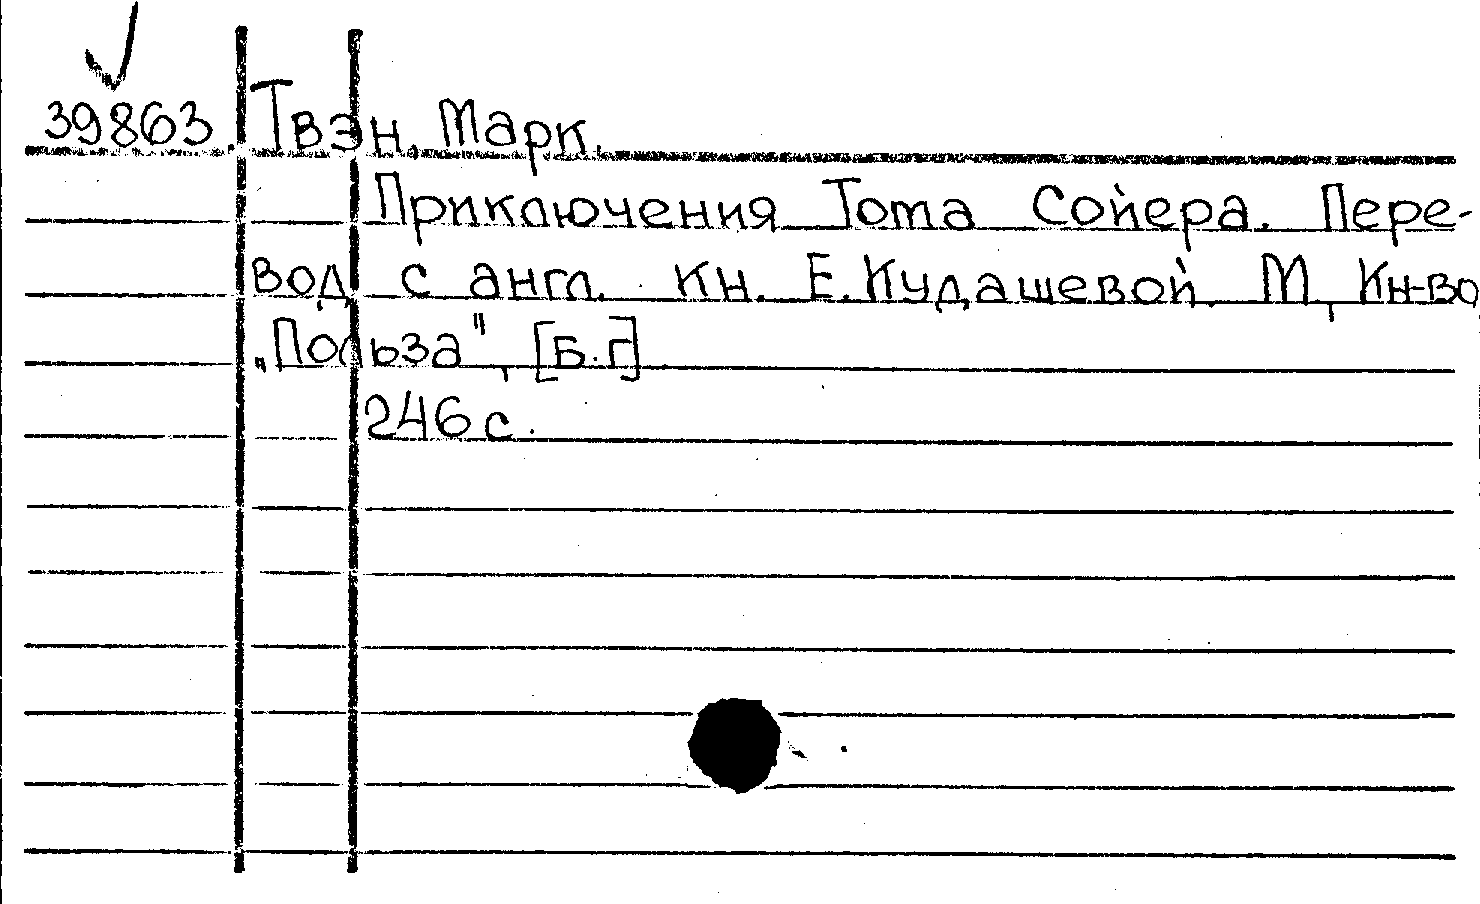 39863. Твэн, Марк.
Приключения Тома Сойера. Пере-
вод с англ. кн. Е. Кудашевой. М, Кн-во
„Польза", [Б.г]
246 с.